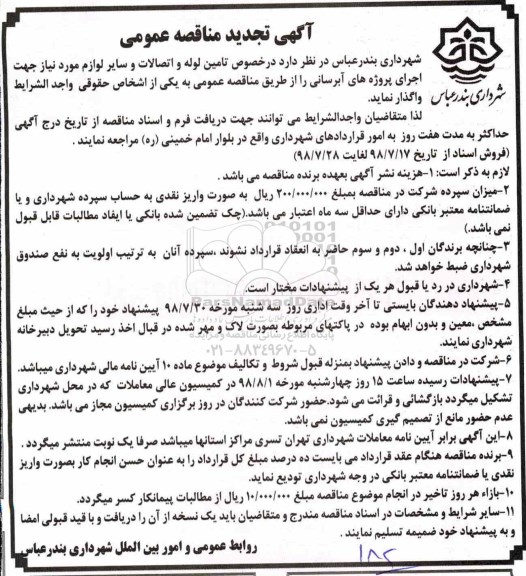 آگهی تجدید مناقصه عمومی
شهرداری بندرعباس
شهرداری بندرعباس در نظر دارد درخصوص تامین لوله و اتصالات و سایر لوازم مورد نیاز جهت
اجرای پروژه های آبرسانی را از طریق مناقصه عمومی به یکی از اشخاص حقوقی واجد الشرایط
واگذار نماید.
لذا متقاضیان واجدالشرایط می توانند جهت دریافت فرم و اسناد مناقصه از تاریخ درج آگهی
حداکثر به مدت هفت روز به امور قراردادهای شهرداری واقع در بلوار امام خمینی (ره) مراجعه نمایند .
(فروش اسناد از تاریخ ۹۸/۷/۱۷ لغایت ۹۸/۷/۲۸)
لازم به ذکر است: ۱-هزینه نشر آگهی بعهده برنده مناقصه می باشد .
۲-میزان سپرده شرکت در مناقصه بمبلغ ۲۰۰/۰۰۰/۰۰۰ ریال به صورت واریز نقدی به حساب سپرده شهرداری و یا
ضمانتنامه معتبر بانکی دارای حداقل سه ماه اعتبار می باشد.(چک تضمین شده بانکی یا ایفاد مطالبات قابل قبول
نمی باشد.)
۳-چنانچه برندگان اول ، دوم و سوم حاضر به انعقاد قرارداد نشوند ،سپرده آنان به ترتیب اولویت به نفع صندوق
شهرداری ضبط خواهد شد.
۴-شهرداری در رد یا قبول هر یک از پیشنهادات مختار است.
۵-پیشنهاد دهندگان بایستی تا آخر وقت اداری روز سه شنبه مورخه ۹۸/۷/۳۰ پیشنهاد خود را که از حیث مبلغ
مشخص ،معین و بدون ابهام بوده در پاکتهای مربوطه بصورت لاک و مهر شده در قبال اخذ رسید تحویل دبیرخانه
شهرداری نمایند.
ParsNamadData
۰۲۱-۸۸۳۴۹۶۷۰-۵
۶-شرکت در مناقصه و دادن پیشنهاد بمنزله قبول شروط و تکالیف موضوع ماده ۱۰ آیین نامه مالی شهرداری میباشد.
۷-پیشنهادات رسیده ساعت ۱۵ روز چهارشنبه مورخه ۹۸/۸/۱ در کمیسیون عالی معاملات که در محل شهرداری
تشکیل میگردد بازگشائی و قرائت می شود.حضور شرکت کنندگان در روز برگزاری کمیسیون مجاز می باشد. بدیهی
عدم حضور مانع از تصمیم گیری کمیسیون نمی باشد.
۸-این آگهی برابر آیین نامه معاملات شهرداری تهران تسری مراکز استانها میباشد صرفا یک نوبت منتشر میگردد .
۹-برنده مناقصه هنگام عقد قرارداد می بایست ده درصد مبلغ کل قرارداد را به عنوان حسن انجام کار بصورت واریز
نقدی یا ضمانتنامه معتبر بانکی در وجه شهرداری تودیع نماید.
۱۰-بازاء هر روز تاخیر در انجام موضوع مناقصه مبلغ ۱۰/۰۰۰/۰۰۰ ریال از مطالبات پیمانکار کسر میگردد.
۱۱-سایر شرایط و مشخصات در اسناد مناقصه مندرج و متقاضیان باید یک نسخه از آن را دریافت و با قید قبولی امضا
و به پیشنهاد خود ضمیمه تسلیم نمایند .
روابط عمومی و امور بین الملل شهرداری بندرعباس